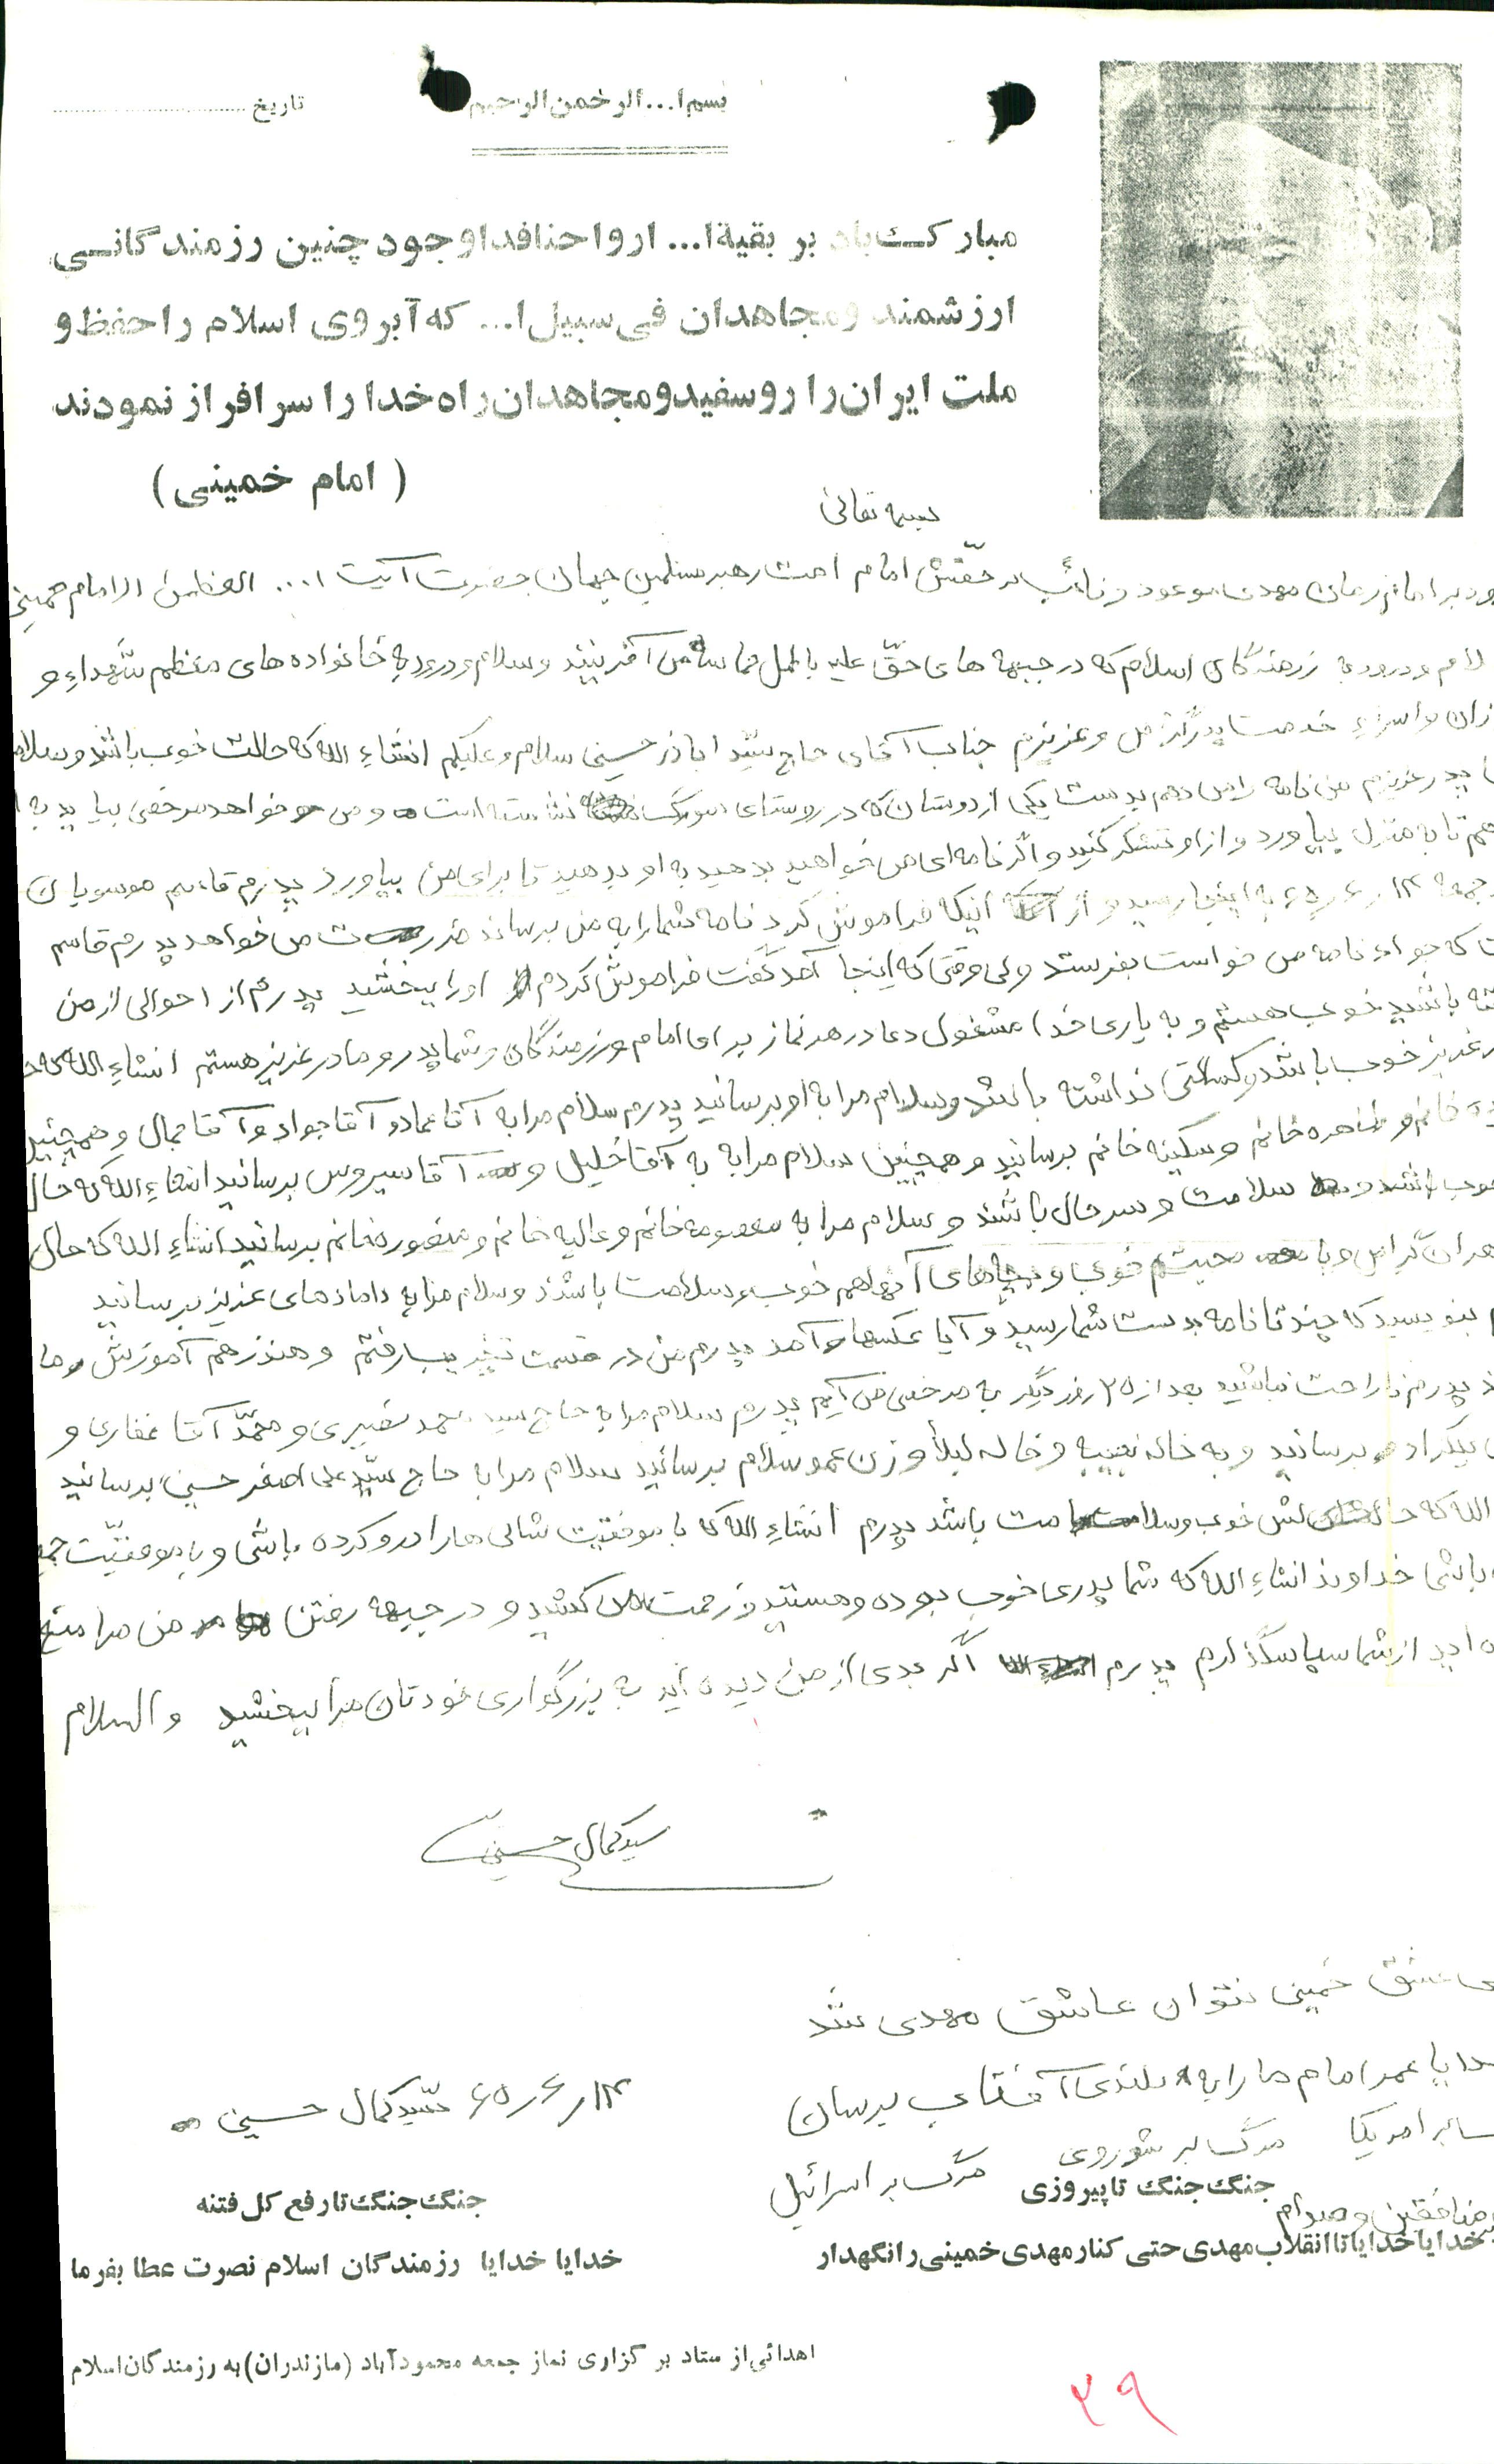 بسم ا... الرحمن الرحیم
تاریخ
مبارک باد بر بقیة ا... ارواحنا فدا وجود چنین رزمندگانی
ارزشمند و مجاهدان فی سبیل ا... که آبروی اسلام را حفظ و
ملت ایران را روسفید و مجاهدان راه خدا را سرافراز نمودند
(امام خمینی)
بسمه تعالی
بر امام زمان مهدی موعود و نائب بر حقّش امام امت رهبر مسلمین جهان حضرت آیت ا... العظمی الامام خمینی
لام و درود به رزمندگان اسلام که در جبهه های حقّ علیه باطل حماسه می آفرینند و سلام و درود به خانواده های معظم شهداء و
و اسراء خدمت پدر گرامی و عزیزم جناب آقای حاج سید اباذر حسینی سلام و علیکم انشاء الله که حالت خوب باشد و سلام
پدر عزیزم من نامه را می دهم بدست یکی از دوستان که در روستای نشسته است و می خواهد مرخصی بیاید به
تا به منزل بیاورد و از او تشکر کنید و اگر نامه ای می خواهید بدهید به او بدهید تا برای من بیاورد پدرم قاسم موسویان
جمعه ۱۴ر۶ر۶۵ به اینجا رسید و از اینکه فراموش کرد نامه شما را به من برساند می خواهد پدرم قاسم
که جواب نامه می خواست بفرستد ولی وقتی که اینجا آمد گفت فراموش کردم او را ببخشید پدرم از احوالی از من
باشید خوب هستم و به یاری خدا مشغول دعا در هر نماز برای امام و رزمندگان و شما پدر و مادر عزیز هستم انشاء الله که
عزیز خوب باشد و کسالتی نداشته باشد و سلام مرا به او برسانید پدرم سلام مرا به آقا عماد و آقا جواد و آقا جمال و همچنین
خانم و طاهره خانم و سکینه خانم برسانید و همچنین سلام مرا به به آقا خلیل و آقا سیروس برسانید انشاء الله که حال
خوب باشد و سلامت و سرحال باشند و سلام مرا به معصومه خانم و عالیه خانم و منصوره خانم برسانید انشاء الله که حال
گرامی و با خوب و بچه های آنها هم خوب و سلامت باشند و سلام مرا به دامادهای عزیز برسانید
بنویسید که چند تا نامه بدست شما رسید و آیا عکسها آمد پدرم من در قسمت تخریب رفتم و هنوز هم آموزش ما
پدرم ناراحت نباشید بعد از ۲۵ روز دیگر به مرخصی می آیم پدرم سلام مرا به حاج سید محمد نصیری و محمّد آقا غفاری و
برسانید و به خاله و خاله لیلا و زن عمو سلام برسانید سلام مرا به حاج سیّد علی اصغر حسینی برسانید
الله که خوب و سلامت باشد پدرم انشاء الله که با موفقیّت شالی ها را درو کرده باشی و با موفقیّت
باشی خداوند انشاء الله که شما پدری خوب بوده و هستید و زحمت کشید و در جبهه رفتن من مرا
از شما سپاسگذارم پدرم اگر بدی از من دیده اید به بزرگواری خودتان مرا ببخشید والسلام
سید کمال حسینی
عشق خمینی نتوان عاشق مهدی شد
عمر امام ما را به بلندی آفتاب برسان
۱۴ر۶ر۶۵ سیّد کمال حسینی
بر امریکا مرگ بر شوروی مرگ بر اسرائیل
منافقین و صدام
جنگ جنگ تا پیروزی
جنگ جنگ تا رفع کل فتنه
خدایا خدایا تا انقلاب مهدی حتی کنار مهدی خمینی را نگهدار
خدایا خدایا رزمندگان اسلام نصرت عطا بفرما
اهدائی از ستاد برگزاری نماز جمعه محمودآباد (مازندران) به رزمندگان اسلام
۳۹